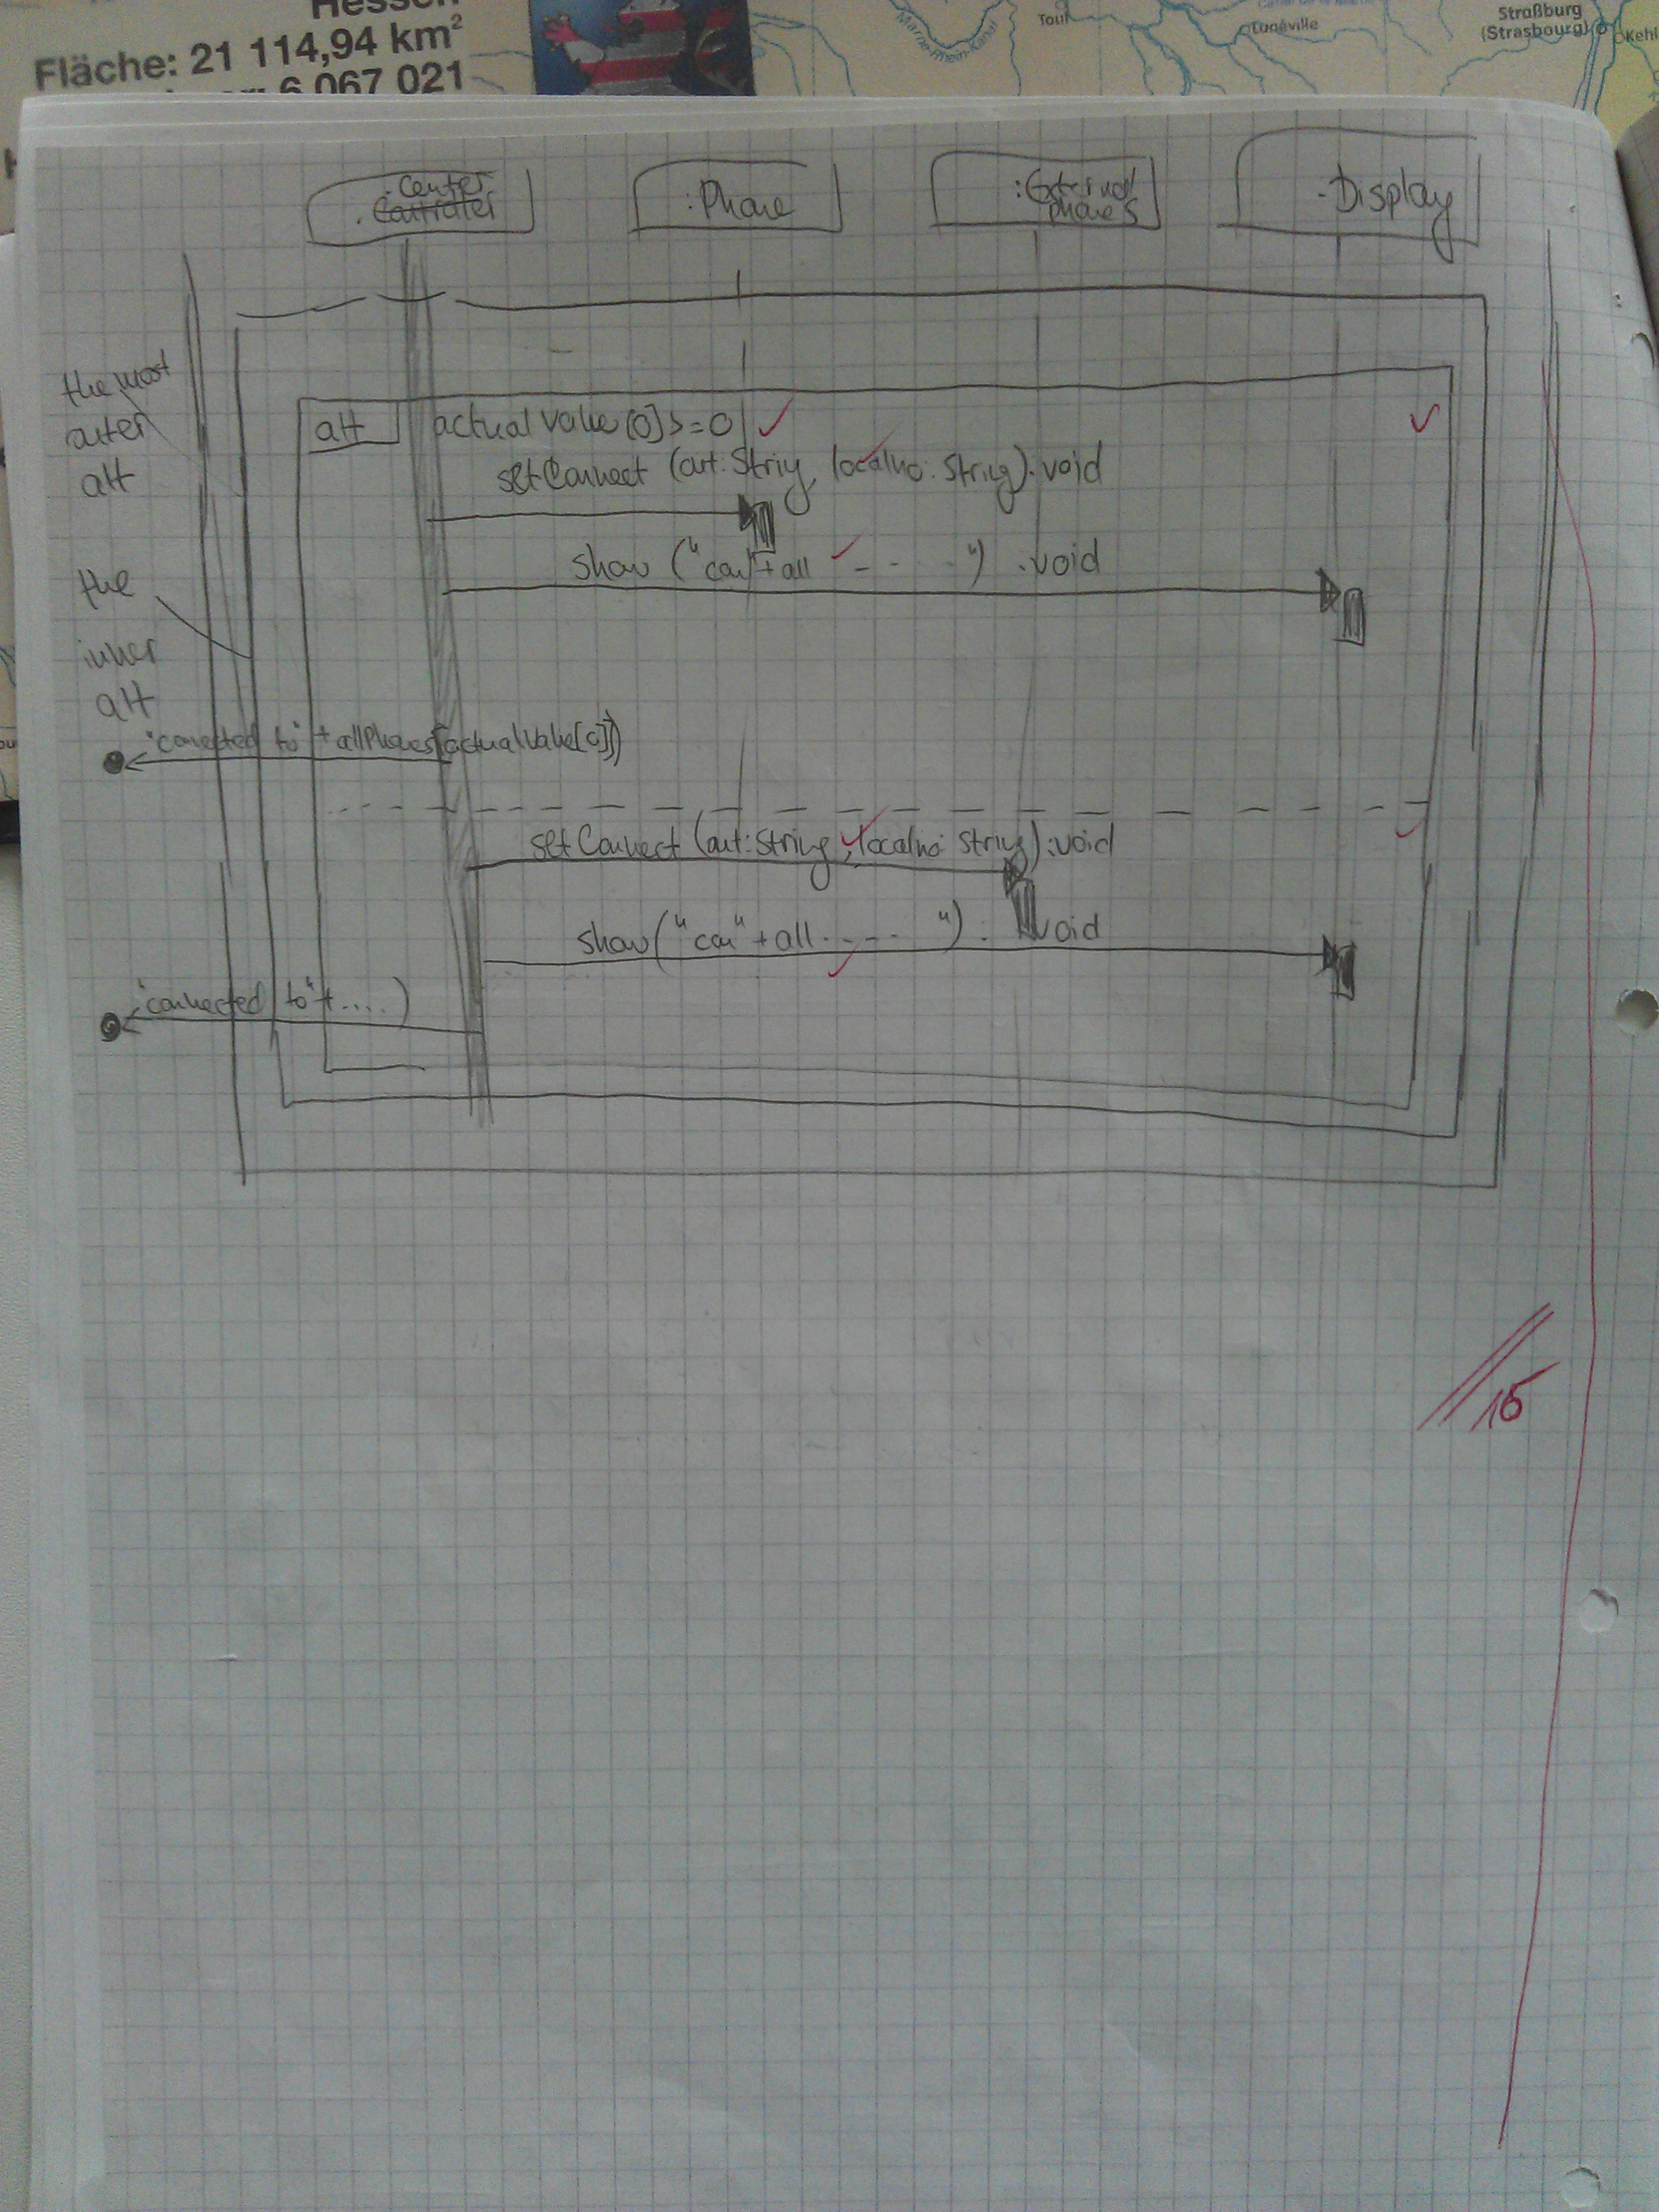 Hessen
Fläche: 21 114,94 km²
6 067 021
Marne-Rhein-Kanal
Toul
Lunéville
Straßburg
(Strasbourg)
Kehl
: Center
: Controler
:Phone
:External
phones
:Display
the most
outer
alt
alt
actualValue[0]>=0
setConnect (out:String, localno:String):void
show ("con"+all - - - - ") :void
the
inner
alt
"connected to" + allPhones[actualValue[0]])
setConnect (out:String, localno:String):void
show("con"+all ..---- ") : void
"connected to"+....)
15